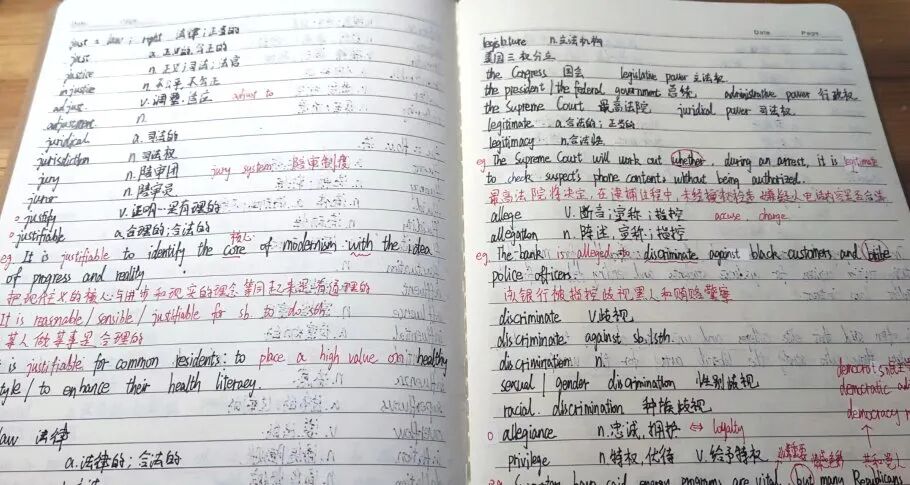 just = law; right 法律;正当的
just a. 正义的,公正的
justice n. 正义;司法;法官
injustice n. 不公平,不公正
adjust v. 调整;适应 adjust to
adjustment n.
juridical a. 司法的
jurisdiction n. 司法权
jury n. 陪审团 jury system 陪审制度
juror n. 陪审员
justify v. 证明…是有理的
justifiable a. 合理的;合法的
eg. It is justifiable to identify the core of modernism with the idea
核心
of progress and reality.
把现代主义的核心与进步和现实的理念等同起来是有道理的
It is reasonable / sensible / justifiable for sb. to do sth.
某人做某事是合理的
is justifiable for common residents to place a high value on healthy
style / to enhance their health literacy.
law 法律
a. 法律的;合法的
Date Page
legislature n. 立法机构
美国三权分立
the Congress 国会 legislative power 立法权
the president / the federal government 总统 administrative power 行政权
the Supreme Court 最高法院 juridical power 司法权
legitimate a. 合法的;正当的
legitimacy n. 合法性
eg. The Supreme Court will work out whether, during an arrest, it is legitimate
to check suspect's phone content, without being authorized.
最高法院将决定,在逮捕过程中,未经授权检查嫌疑人电话内容是否合法
allege v. 断言;宣称;指控 accuse, charge
allegation n. 陈述,宣称;指控
eg. The bank is alleged to discriminate against black customers and bribe
police officers.
该银行被指控歧视黑人和贿赂警察
discriminate v. 歧视
discriminate against sb./sth.
discrimination n.
sexual / gender discrimination 性别歧视
racial discrimination 种族歧视
democratic
democracy
allegiance n. 忠诚,拥护 ⇔ loyalty
privilege n. 特权,优待 v. 给予特权
have said energy programs are vital, but many Republicans